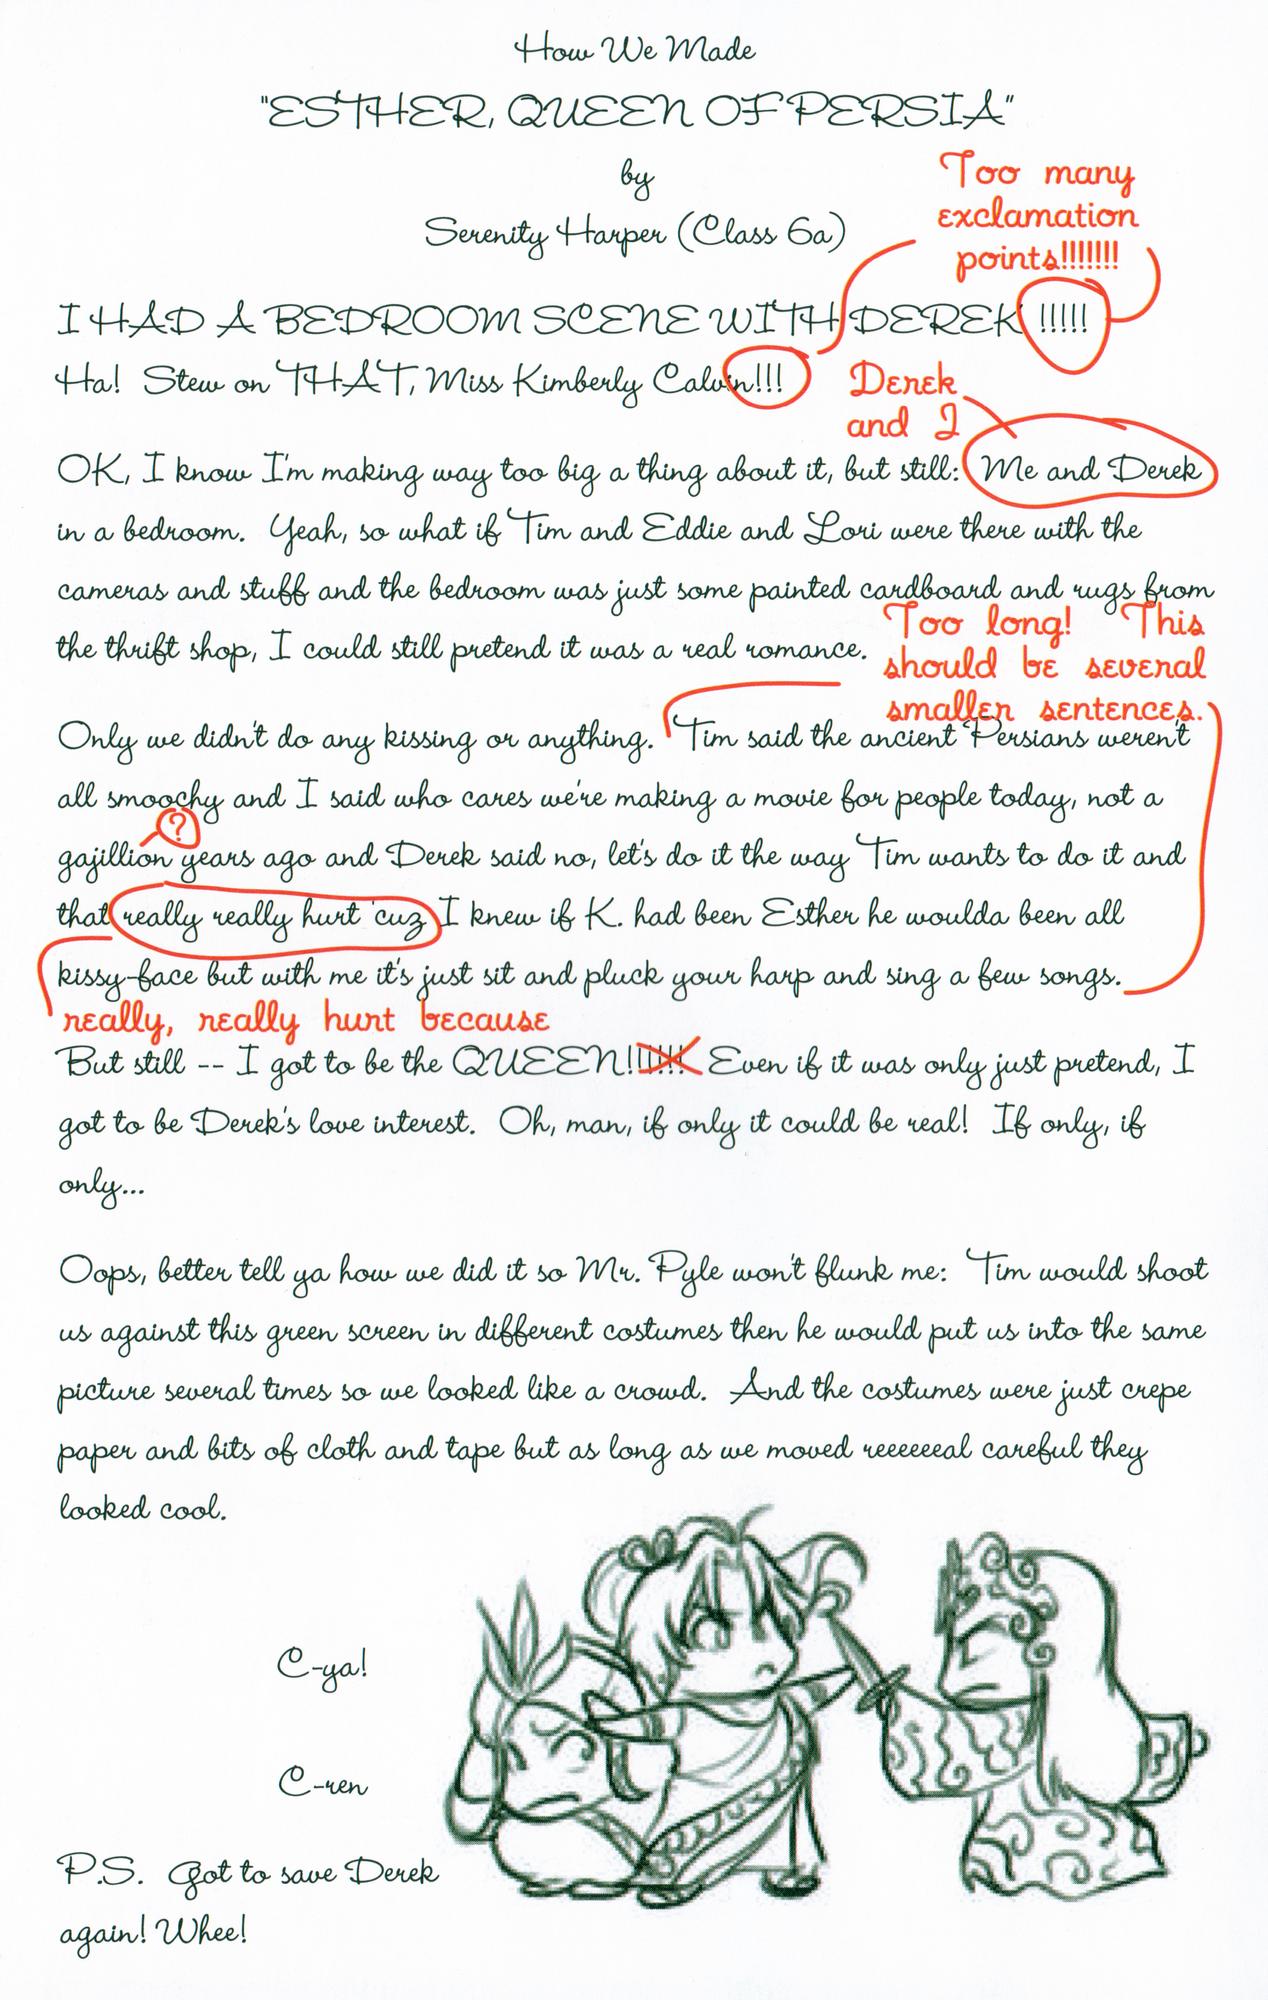 How We Made
"ESTHER, QUEEN OF PERSIA"
by
Serenity Harper (Class 6a)
Too many
exclamation
points!!!!!!!
I HAD A BEDROOM SCENE WITH DEREK !!!!!
Ha! Stew on THAT, Miss Kimberly Calvin!!!
Derek
and I
OK, I know I'm making way too big a thing about it, but still: Me and Derek
in a bedroom. Yeah, so what if Tim and Eddie and Lori were there with the
cameras and stuff and the bedroom was just some painted cardboard and rugs from
the thrift shop, I could still pretend it was a real romance.
Too long! This
should be several
smaller sentences.
Only we didn't do any kissing or anything. Tim said the ancient Persians weren't
all smoochy and I said who cares we're making a movie for people today, not a
?
gajillion years ago and Derek said no, let's do it the way Tim wants to do it and
that really really hurt 'cuz I knew if K. had been Esther he woulda been all
kissy-face but with me it's just sit and pluck your harp and sing a few songs.
really, really hurt because
But still -- I got to be the QUEEN!!!!!! Even if it was only just pretend, I
got to be Derek's love interest. Oh, man, if only it could be real! If only, if
only...
Oops, better tell ya how we did it so Mr. Pyle won't flunk me: Tim would shoot
us against this green screen in different costumes then he would put us into the same
picture several times so we looked like a crowd. And the costumes were just crepe
paper and bits of cloth and tape but as long as we moved reeeeeeal careful they
looked cool.
C-ya!
C-ren
P.S. Got to save Derek
again! Whee!